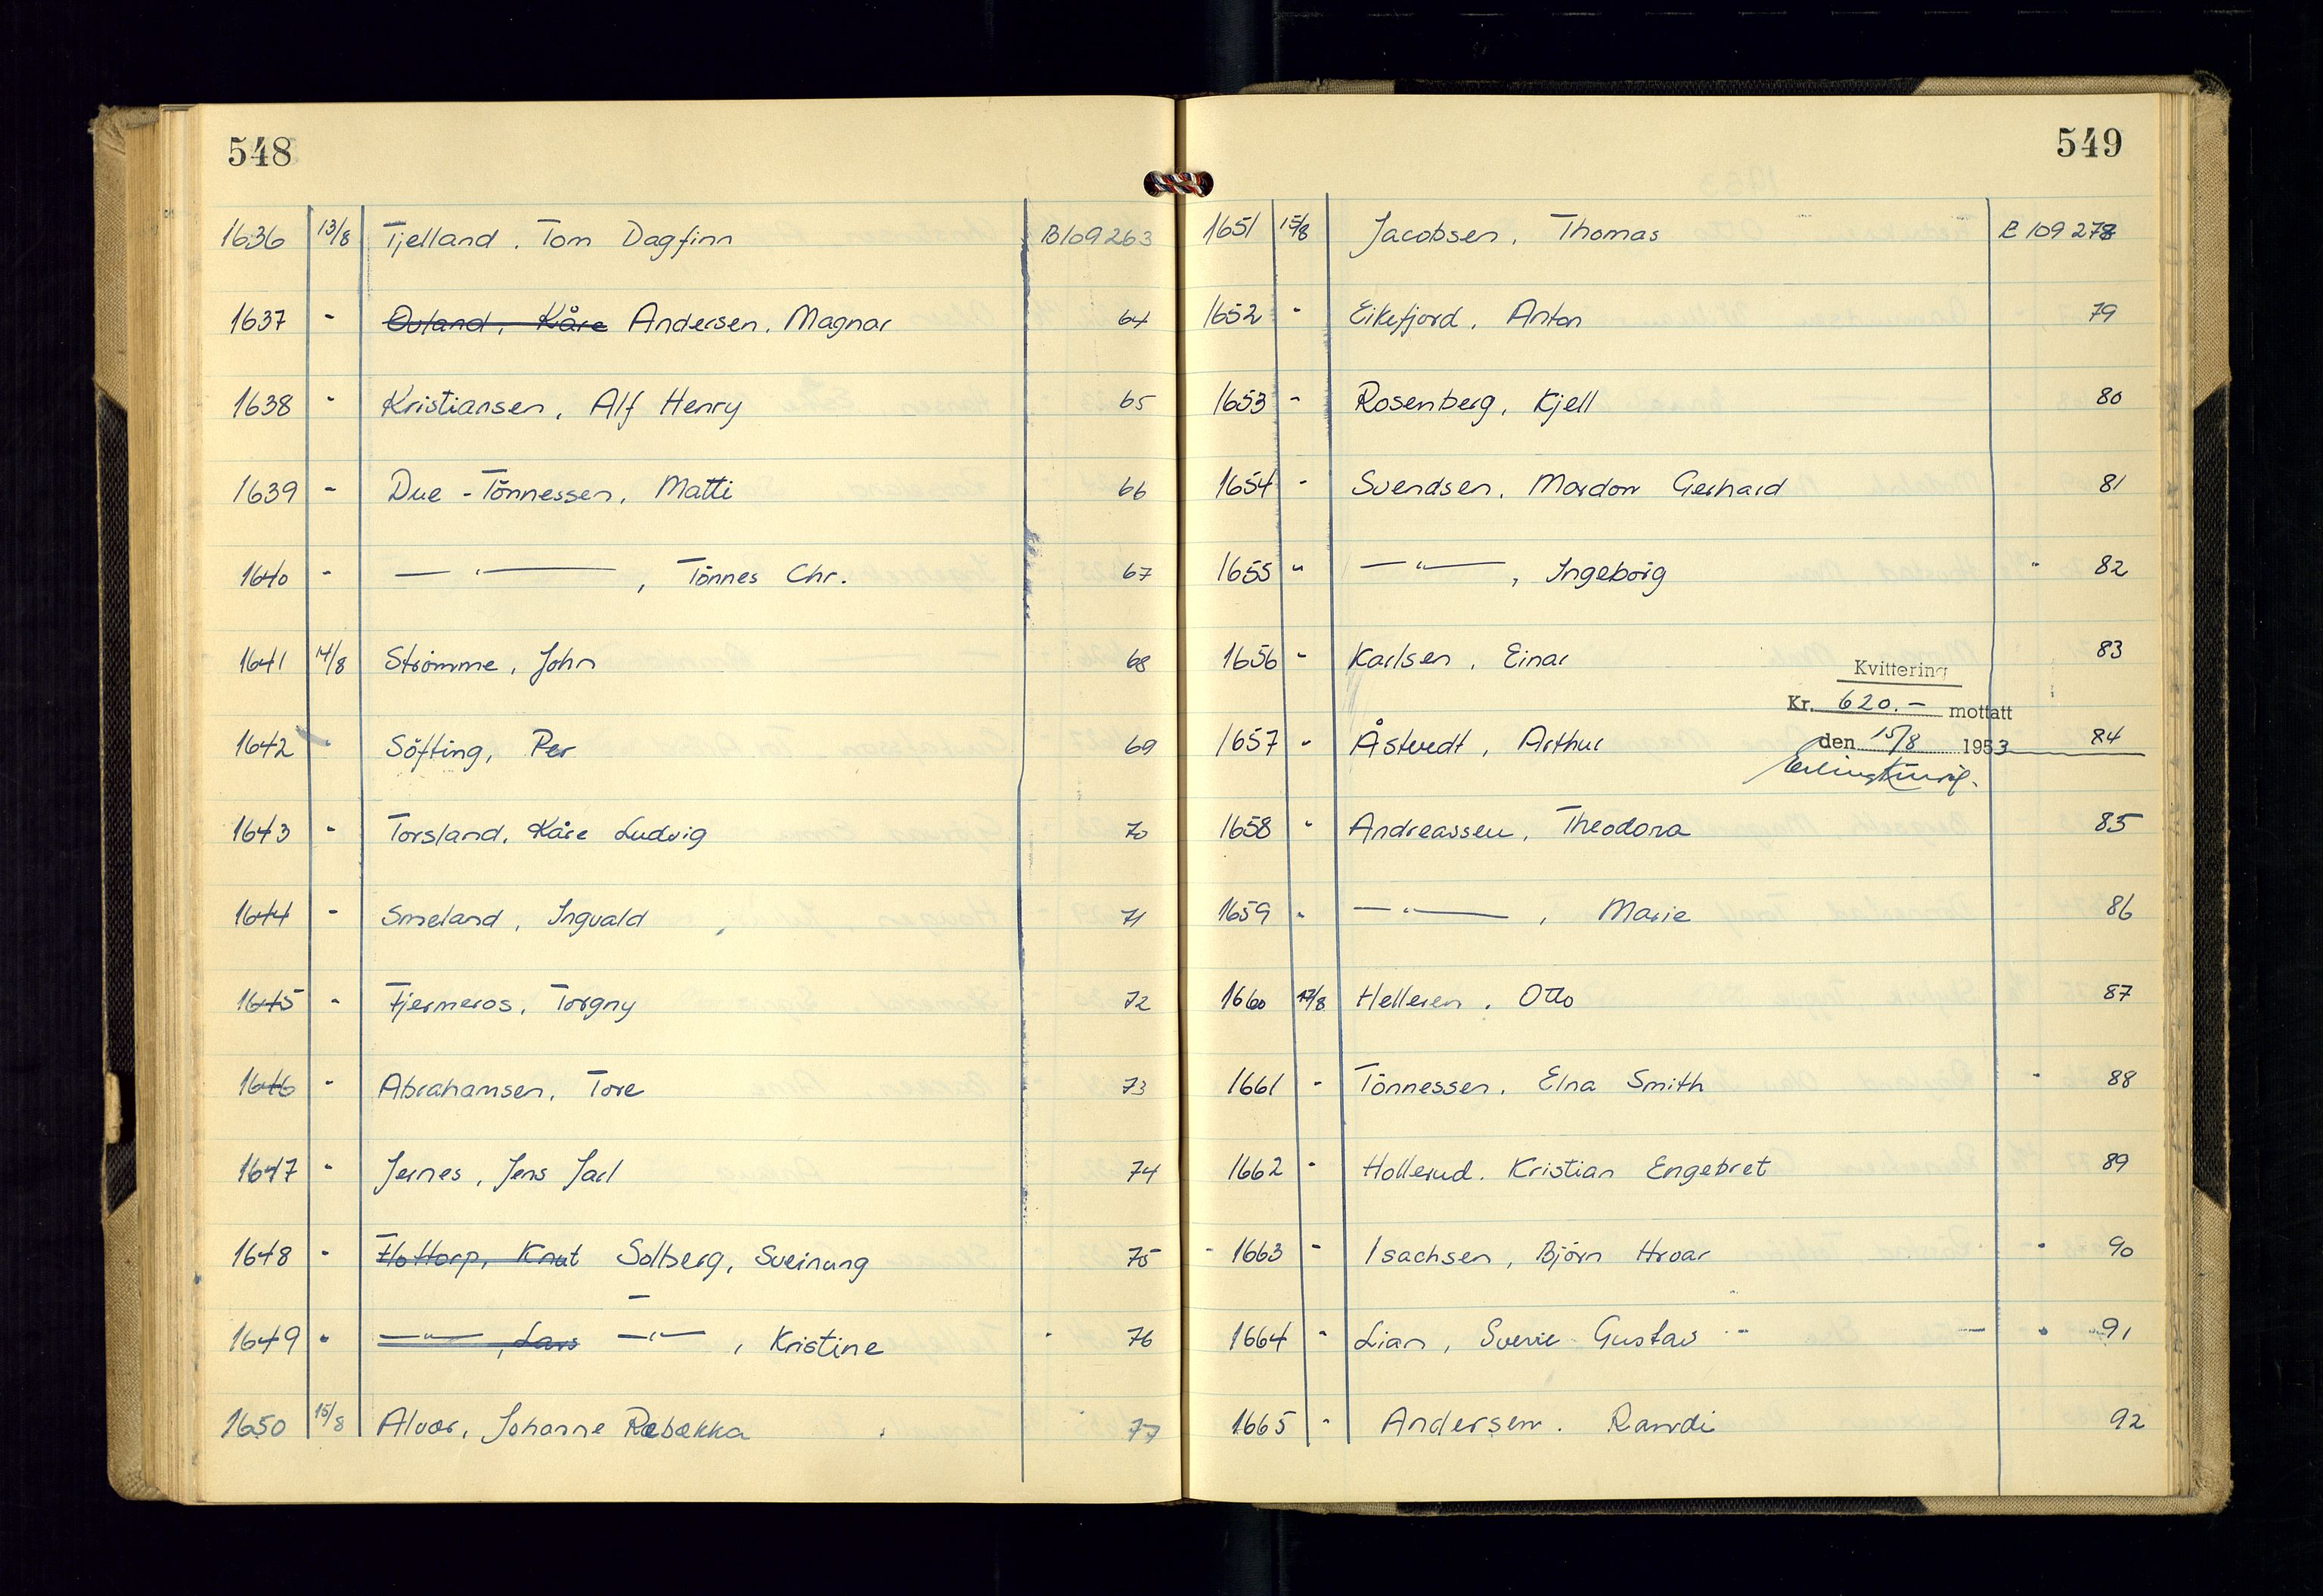 548
1636 13/8 Tjelland. Tom Dagfinn B109263
1637 - Ovland, Kåre Andersen, Magnar 64
1638 - Kristiansen, Alf Henry 65
1639 - Due-Tönnessen, Matti 66
1640 - — " —, Tönnes Chr. 67
1641 14/8 Strömme, John 68
1642 - Söfting, Per 69
1643 - Torsland, Kåre Ludvig 70
1644 - Smeland, Ingvald 71
1645 - Fjermeros, Torgny 72
1646 - Abrahamsen, Tore 73
1647 - Jernes, Jens Jarl 74
1648 - Knut Solberg, Sveinung 75
1649 - — " —, Lars — " —, Kristine 76
1650 15/8 Alvær, Johanne Rebekka 77
549
1651 15/8 Jacobsen, Thomas B 109 278
1652 - Eikefjord, Anton 79
1653 - Rosenberg, Kjell 80
1654 - Svendsen, Mardon Gerhard 81
1655 - — " —, Ingeborg 82
1656 - Karlsen, Einar 83
Kvittering
Kr. 620.- mottatt
1657 - Åstvedt, Arthur 84
den 15/8 1953
1658 - Andreassen, Theodora 85
1659 - — " —, Marie 86
1660 17/8 Helleren, Otto 87
1661 - Tönnessen, Elna Smith 88
1662 - Hollerud. Kristian Engebret 89
1663 - Isachsen, Björn Hroar 90
1664 - Lian, Sverre Gustav 91
1665 - Andersen. Randi 92